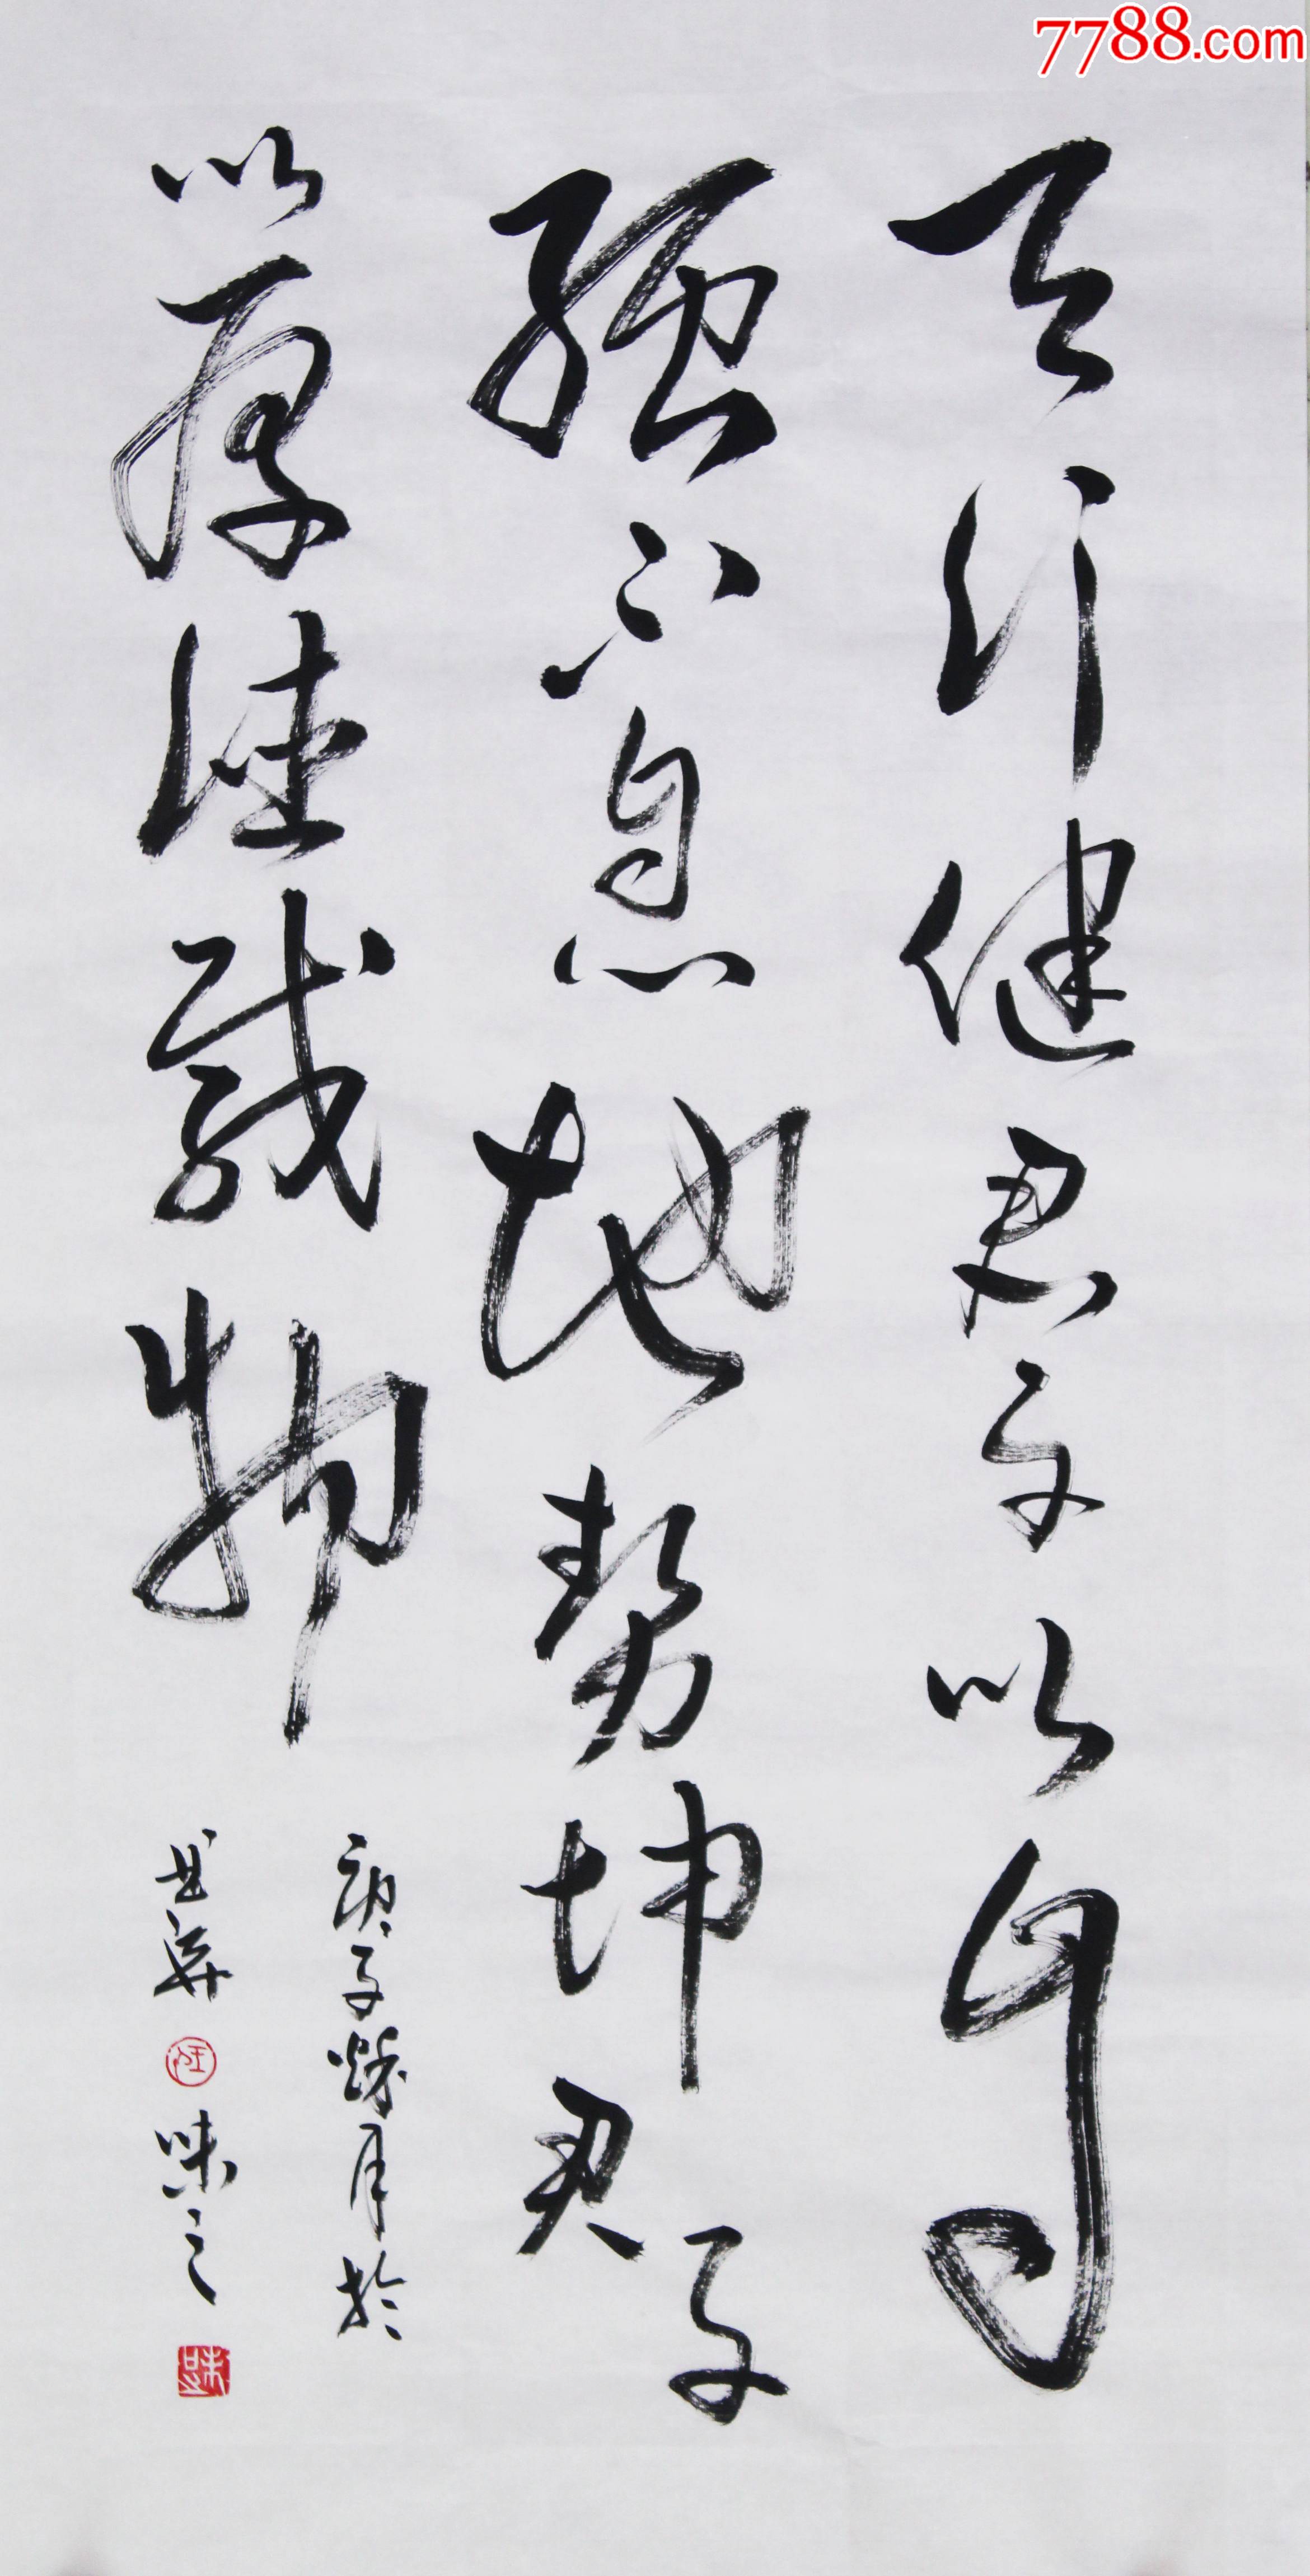 7788.com
天行健君子以自
强不息地势坤君子
以厚德载物
庚子秋月於
味之